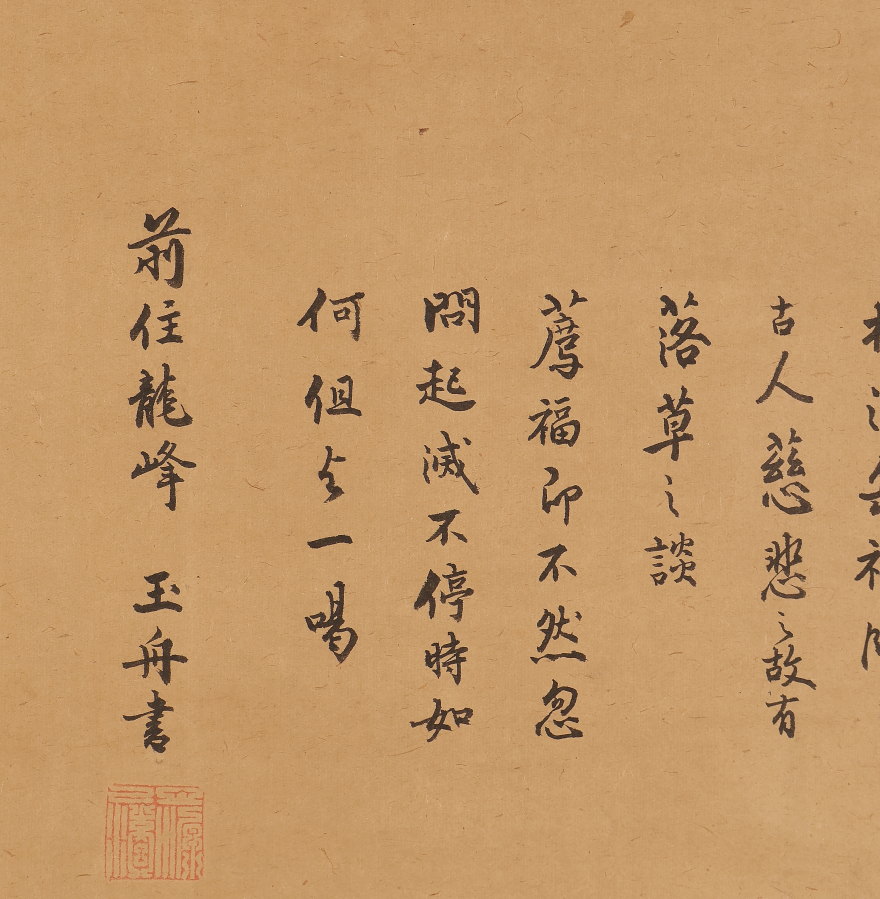 古人慈悲之故有
落草之談
薦福即不然忽
問起滅不停時如
何但与一喝
前住龍峰 玉舟書